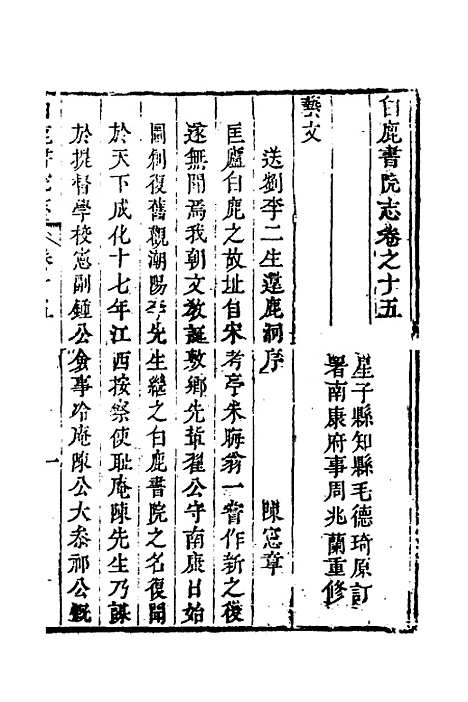 白鹿書院志卷之十五
星子縣知縣毛德琦原訂
署南康府事周兆蘭重修
藝文
送劉李二生還鹿洞序 陳憲章
匡廬白鹿之故址自宋考亭朱晦翁一嘗作新之後
遂無聞焉我朝文教誕敷鄉先軰翟公守南康日始
圖創復舊觀潮陽李先生繼之白鹿書院之名復聞
於天下成化十七年江西按察使恥庵陳先生乃謀
於提督學校憲副鍾公僉事冷庵陳公大叅祁公慨
白鹿書院志 卷十五 一